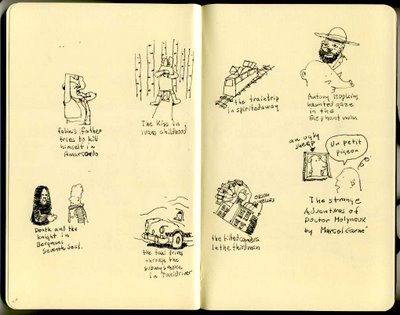 fellini's father
tries to kill
himself in
Amarcord
The Kiss in
ivans childhood
Death and the
knight in
Bergmans
Seventh Seal.
the taxi drives
through the
in Taxidriver
the traintrip
in spiritedaway
Antony Hopkins
haunted gaze
in the
Elephant man
ORSON
WELLES
the tilted camera
in the third man
an ugly
sheep
Un petit
pigeon
The strange
Adventures of
Doctor Molyneux
by Marcel Carné